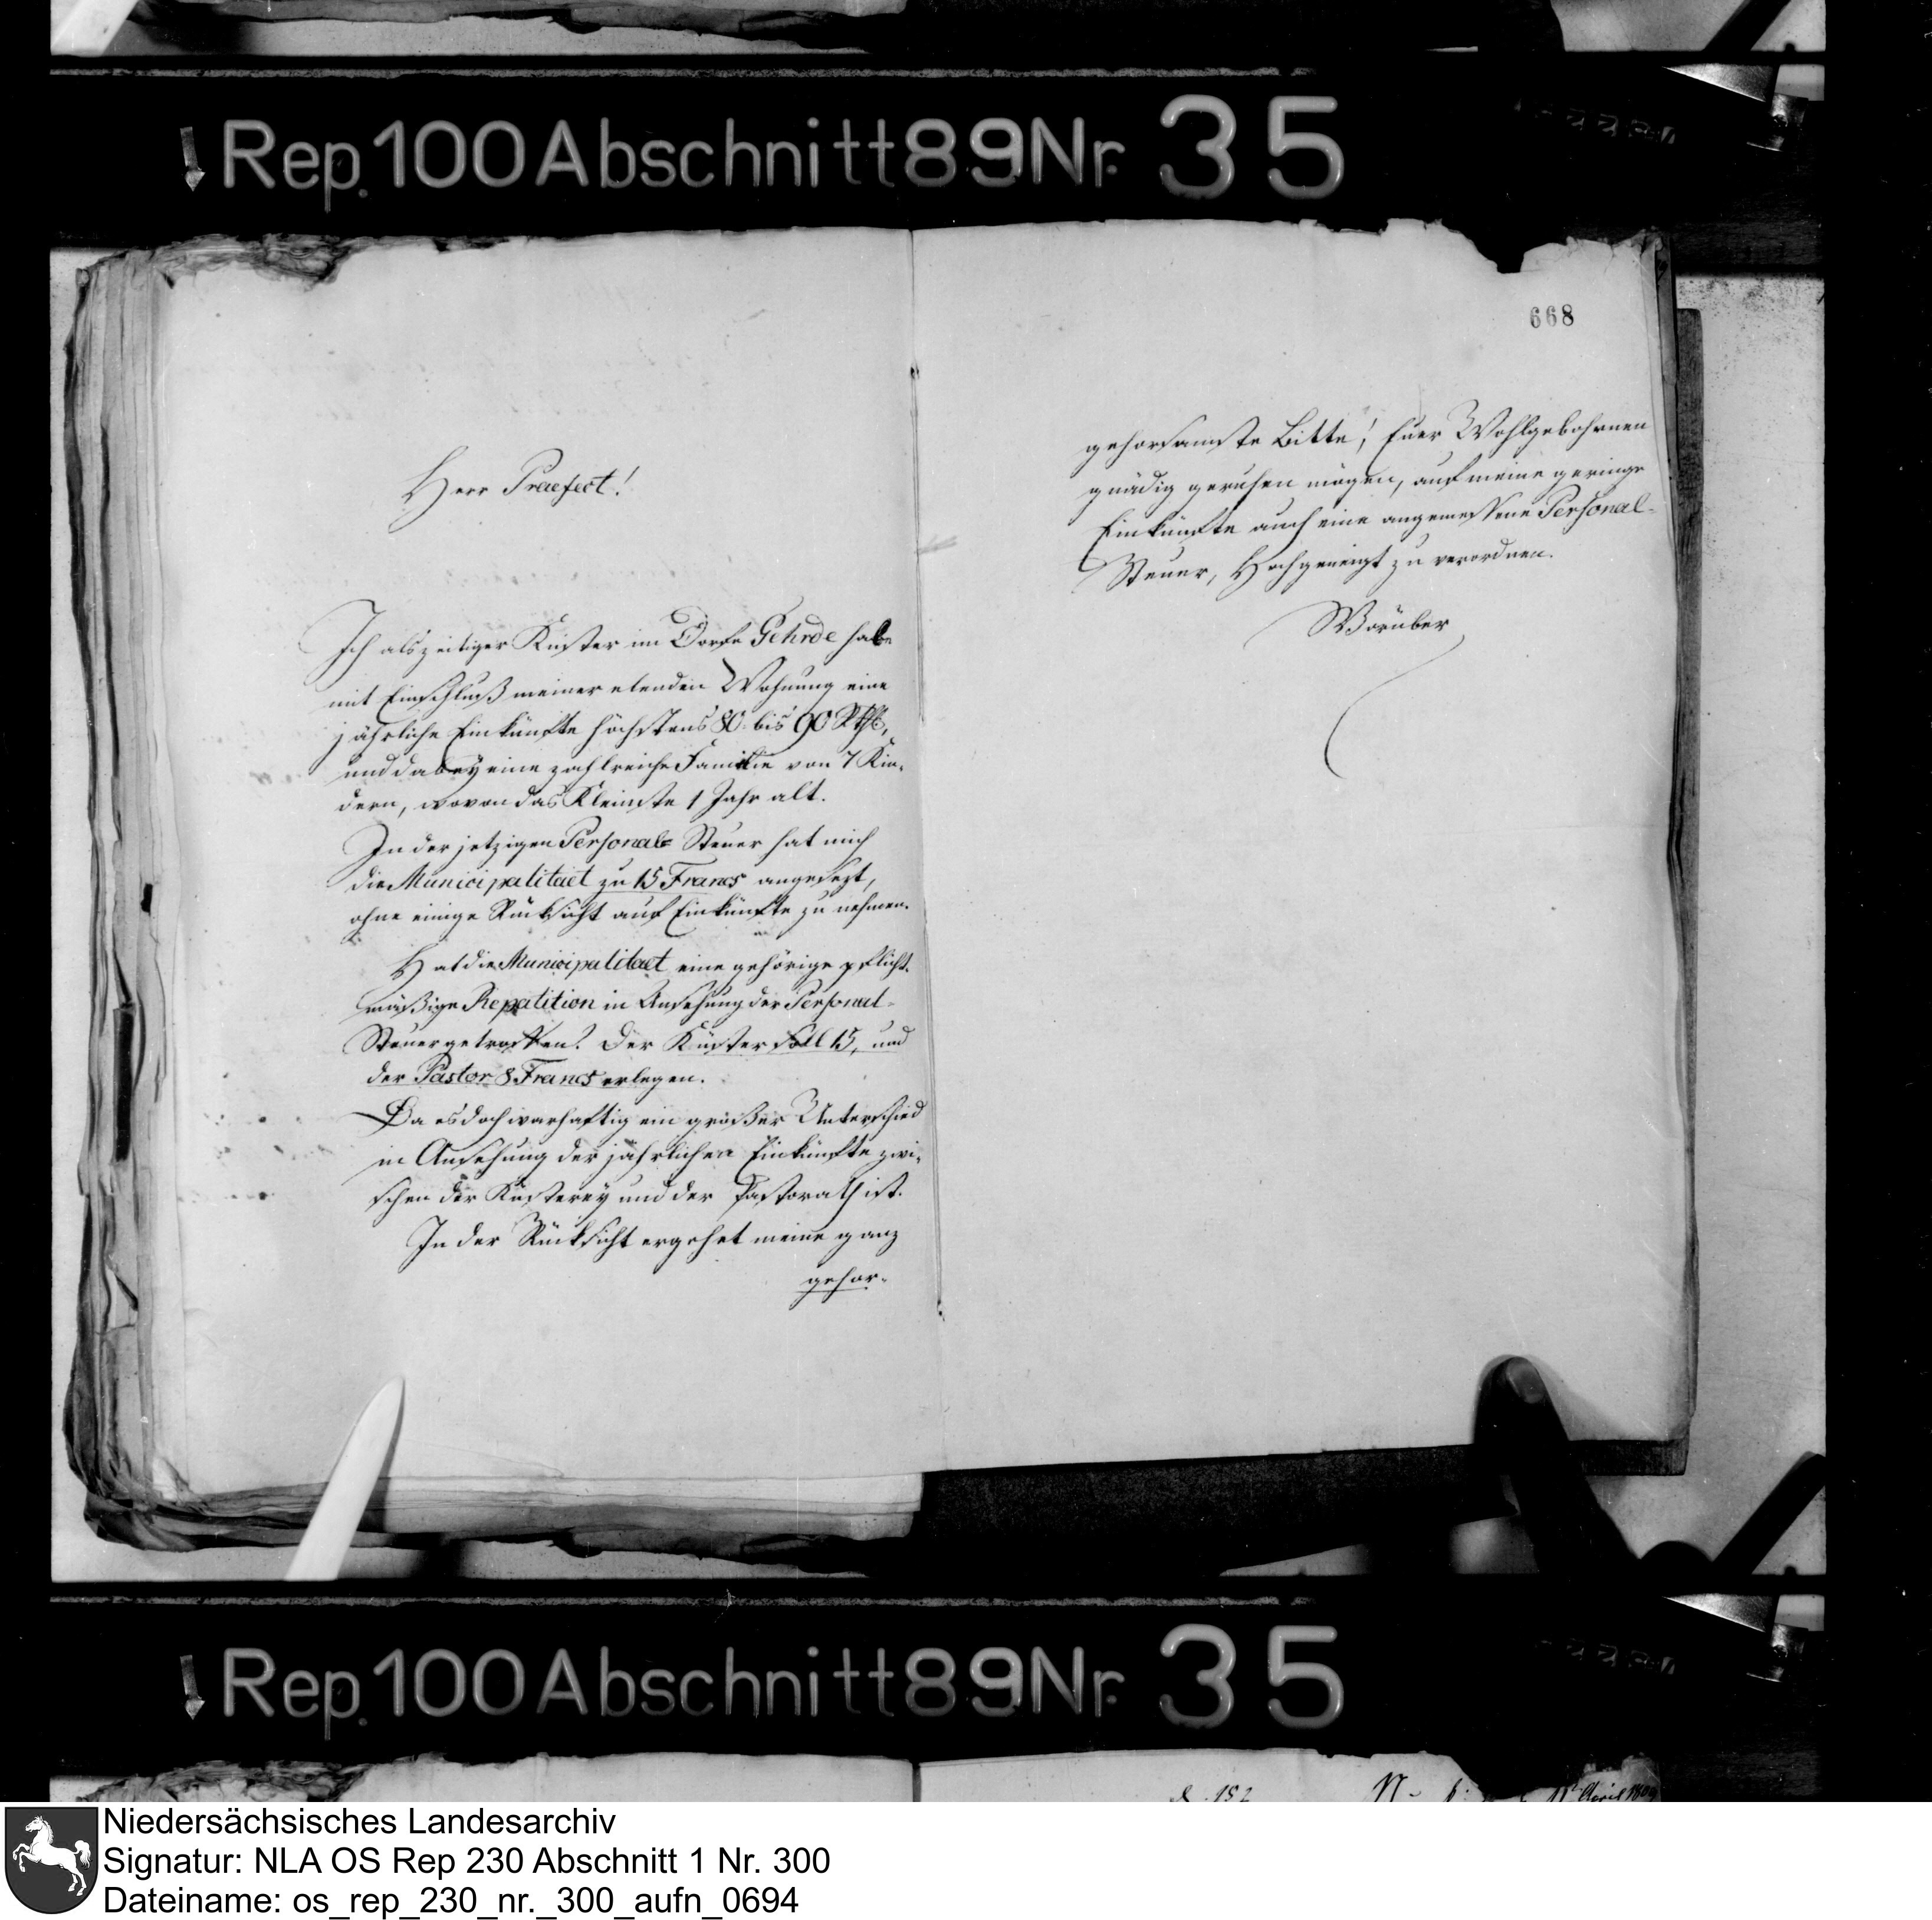 Rep. 100 Abschnitt 89 Nr. 35
Herr Praefect!
Ich als zeitiger Küster im Dorfe Gehrde habe
mit Einschluß meiner elenden Wohnung eine
jährliche Einkünfte höchstens 80 bis 90 Rthl.,
und dabey eine zahlreiche Familie von 7 Kin-
dern, wovon das Kleinste 1 Jahr alt.
In der jetzigen Personal= Steuer hat mich
die Municipalitaet zu 15 Francs angesezt,
ohne einige Rücksicht auf Einkünfte zu nehmen.
Hat die Municipalitaet eine gehörige pflicht-
mäßige Repatition in Ansehung der Personal-
Steuer getroffen? Der Küster soll 15, und
der Pastor 8 Francs erlegen.
Da es doch warhaftig ein großer Unterschied
in Ansehung der jährlichen Einkünfte zwi-
schen der Küsterey und der Pastorath ist.
In der Rücksicht ergehet meine ganz
gehor-
668
gehorsamste Bitte! Euer Wohlgebohrnen
gnädig geruhen mögen, auf meine geringe
Einkünfte auch eine angemessene Personal-
Steuer, Hochgeneigt zu verordnen.
Worüber
Rep. 100 Abschnitt 89 Nr. 35
April 1809
Niedersächsisches Landesarchiv
Signatur: NLA OS Rep 230 Abschnitt 1 Nr. 300
Dateiname: os_rep_230_nr._300_aufn_0694